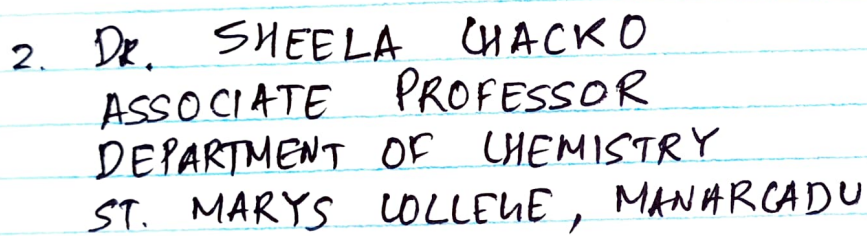 2. DR. SHEELA CHACKO
ASSOCIATE PROFESSOR
DEPARTMENT OF CHEMISTRY
ST. MARYS COLLEGE, MANARCADU